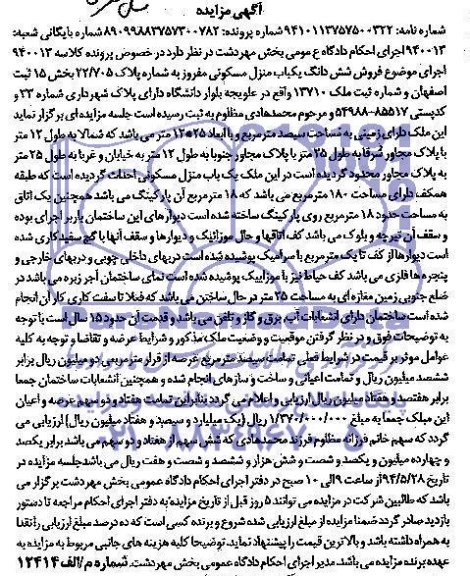 آگهی مزایده
شماره نامه: ۹۴۱۰۱۱۳۷۵۷۵۰۰۳۲۲ شماره پرونده: ۸۹۰۹۹۸۸۳۷۵۷۳۰۰۷۸۲ شماره بایگانی شعبه:
۹۴۰۰۱۳ اجرای احکام دادگاه عمومی بخش مهردشت در نظر دارد در خصوص پرونده کلاسه ۹۴۰۰۱۳
اجرای موضوع فروش شش دانگ یکباب منزل مسکونی مفروز به شماره پلاک ۲۲/۷۰۵ بخش ۱۵ ثبت
اصفهان و شماره ثبت ملک ۱۳۷۱۰ واقع در علویجه بلوار دانشگاه دارای پلاک شهرداری شماره ۲۳ و
کدپستی ۸۵۵۱۷-۵۴۹۸۸ و مرحوم محمدهادی مظلوم به ثبت رسیده است جلسه مزایده ای برگزار نماید
این ملک دارای زمینی به مساحت سیصد مترمربع و با ابعاد ۲۵*۱۲ متر می باشد که شمالا به طول ۱۲ متر
با پلاک مجاور شرقا به طول ۲۵ متر با پلاک مجاور جنوبا به طول ۱۲ متر به خیابان و غربا به طول ۲۵ متر
به پلاک مجاور محدود گردیده است در این ملک یک باب منزل مسکونی احداث گردیده است که طبقه
همکف دارای مساحت ۱۸۰ مترمربع می باشد که ۱۸ مترمربع آن پارکینگ می باشد همچنین یک اتاق
به مساحت حدود ۱۸ مترمربع روی پارکینگ ساخته شده است دیوارهای این ساختمان باربر اجرای بوده
و سقف آن تیرچه و بلوک می باشد کف اتاقها و حال موزائیک و دیوارها و سقف آنها با گچ سفیدکاری شده
است دیوارها از کف تا یک مترمربع با سرامیک پوشیده شده است دربهای داخلی چوبی و دربهای خارجی و
پنجره ها فلزی می باشد کف حیاط نیز با موزاییک پوشیده شده است نمای ساختمان آجر زبره می باشد در
ضلع جنوبی زمین مغازه ای به مساحت ۲۵ متر در حال ساختن می باشد که فعلا تا سفت کاری کار آن انجام
شده است ساختمان دارای انشعابات آب برق و گاز و تلفن می باشد و قدمت آن حدود ۱۵ سال است با توجه
به توضیحات فوق و در نظر گرفتن موقعیت و وضعیت ملک مذکور و شرایط عرضه و تقاضا و توجه به کلیه
عوامل موثر بر قیمت در شرایط فعلی تمامت سیصد مترمربع عرصه از قرار مترمربعی دو میلیون ریال برابر
ششصد میلیون ریال و تمامت اعیانی و ساخت و سازهای انجام شده و همچنین انشعابات ساختمان جمعا
برابر هفتصد و هفتاد میلیون ریال ارزیابی و اعلام می گردد بنابراین تمامت هفتاد و دو سهم عرصه و اعیان
این مبلک جمعا به مبلغ ۱/۳۷۰/۰۰۰/۰۰۰ ریال (یک میلیارد و سیصد و هفتاد میلیون ریال) ارزیابی می
گردد که سهم خانم فرزانه مظلوم فرزند محمدهادی که شش سهم از هفتاد و دو سهم می باشد برابر یکصد
و چهارده میلیون و یکصد و شصت و شش هزار و ششصد و شصت و هفت ریال می باشد جلسه مزایده در
تاریخ ۹۴/۵/۲۸ از ساعت ۹ الی ۱۰ صبح در دفتر اجرای احکام دادگاه عمومی بخش مهردشت برگزار می
باشد که طالبین شرکت در مزایده می توانند ۵ روز قبل از تاریخ مزایده به دفتر اجرای احکام مراجعه تا دستور
بازدید صادر گردد ضمنا مزایده از مبلغ ارزیابی شده شروع و برنده کسی است که ده درصد مبلغ ارزیابی را نقدا
به همراه داشته باشد و بالاترین قیمت را پیشنهاد نماید توضیحا کلیه هزینه های جانبی مربوط به مزایده به
عهده برنده مزایده می باشد. مدیر اجرای احکام دادگاه عمومی بخش مهردشت. شماره م/الف ۱۲۴۱۴